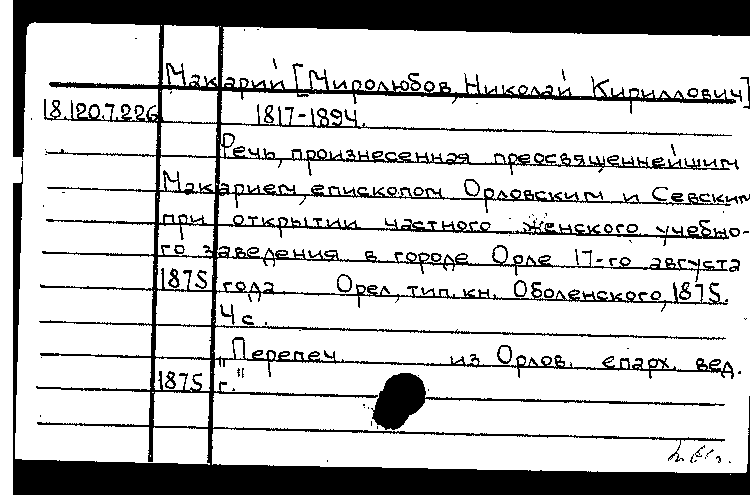 Макарий [Миролюбов, Николай Кириллович]
18.120.7.226 1817-1894.
Речь, произнесенная преосвященнейшим
Макарием, епископом Орловским и Севским
при открытии частного женского учебно-
го заведения в городе Орле 17-го августа
1875 года. Орел, тип. кн. Оболенского, 1875.
4 с.
"Перепеч. из Орлов. епарх. вед.
1875 г."